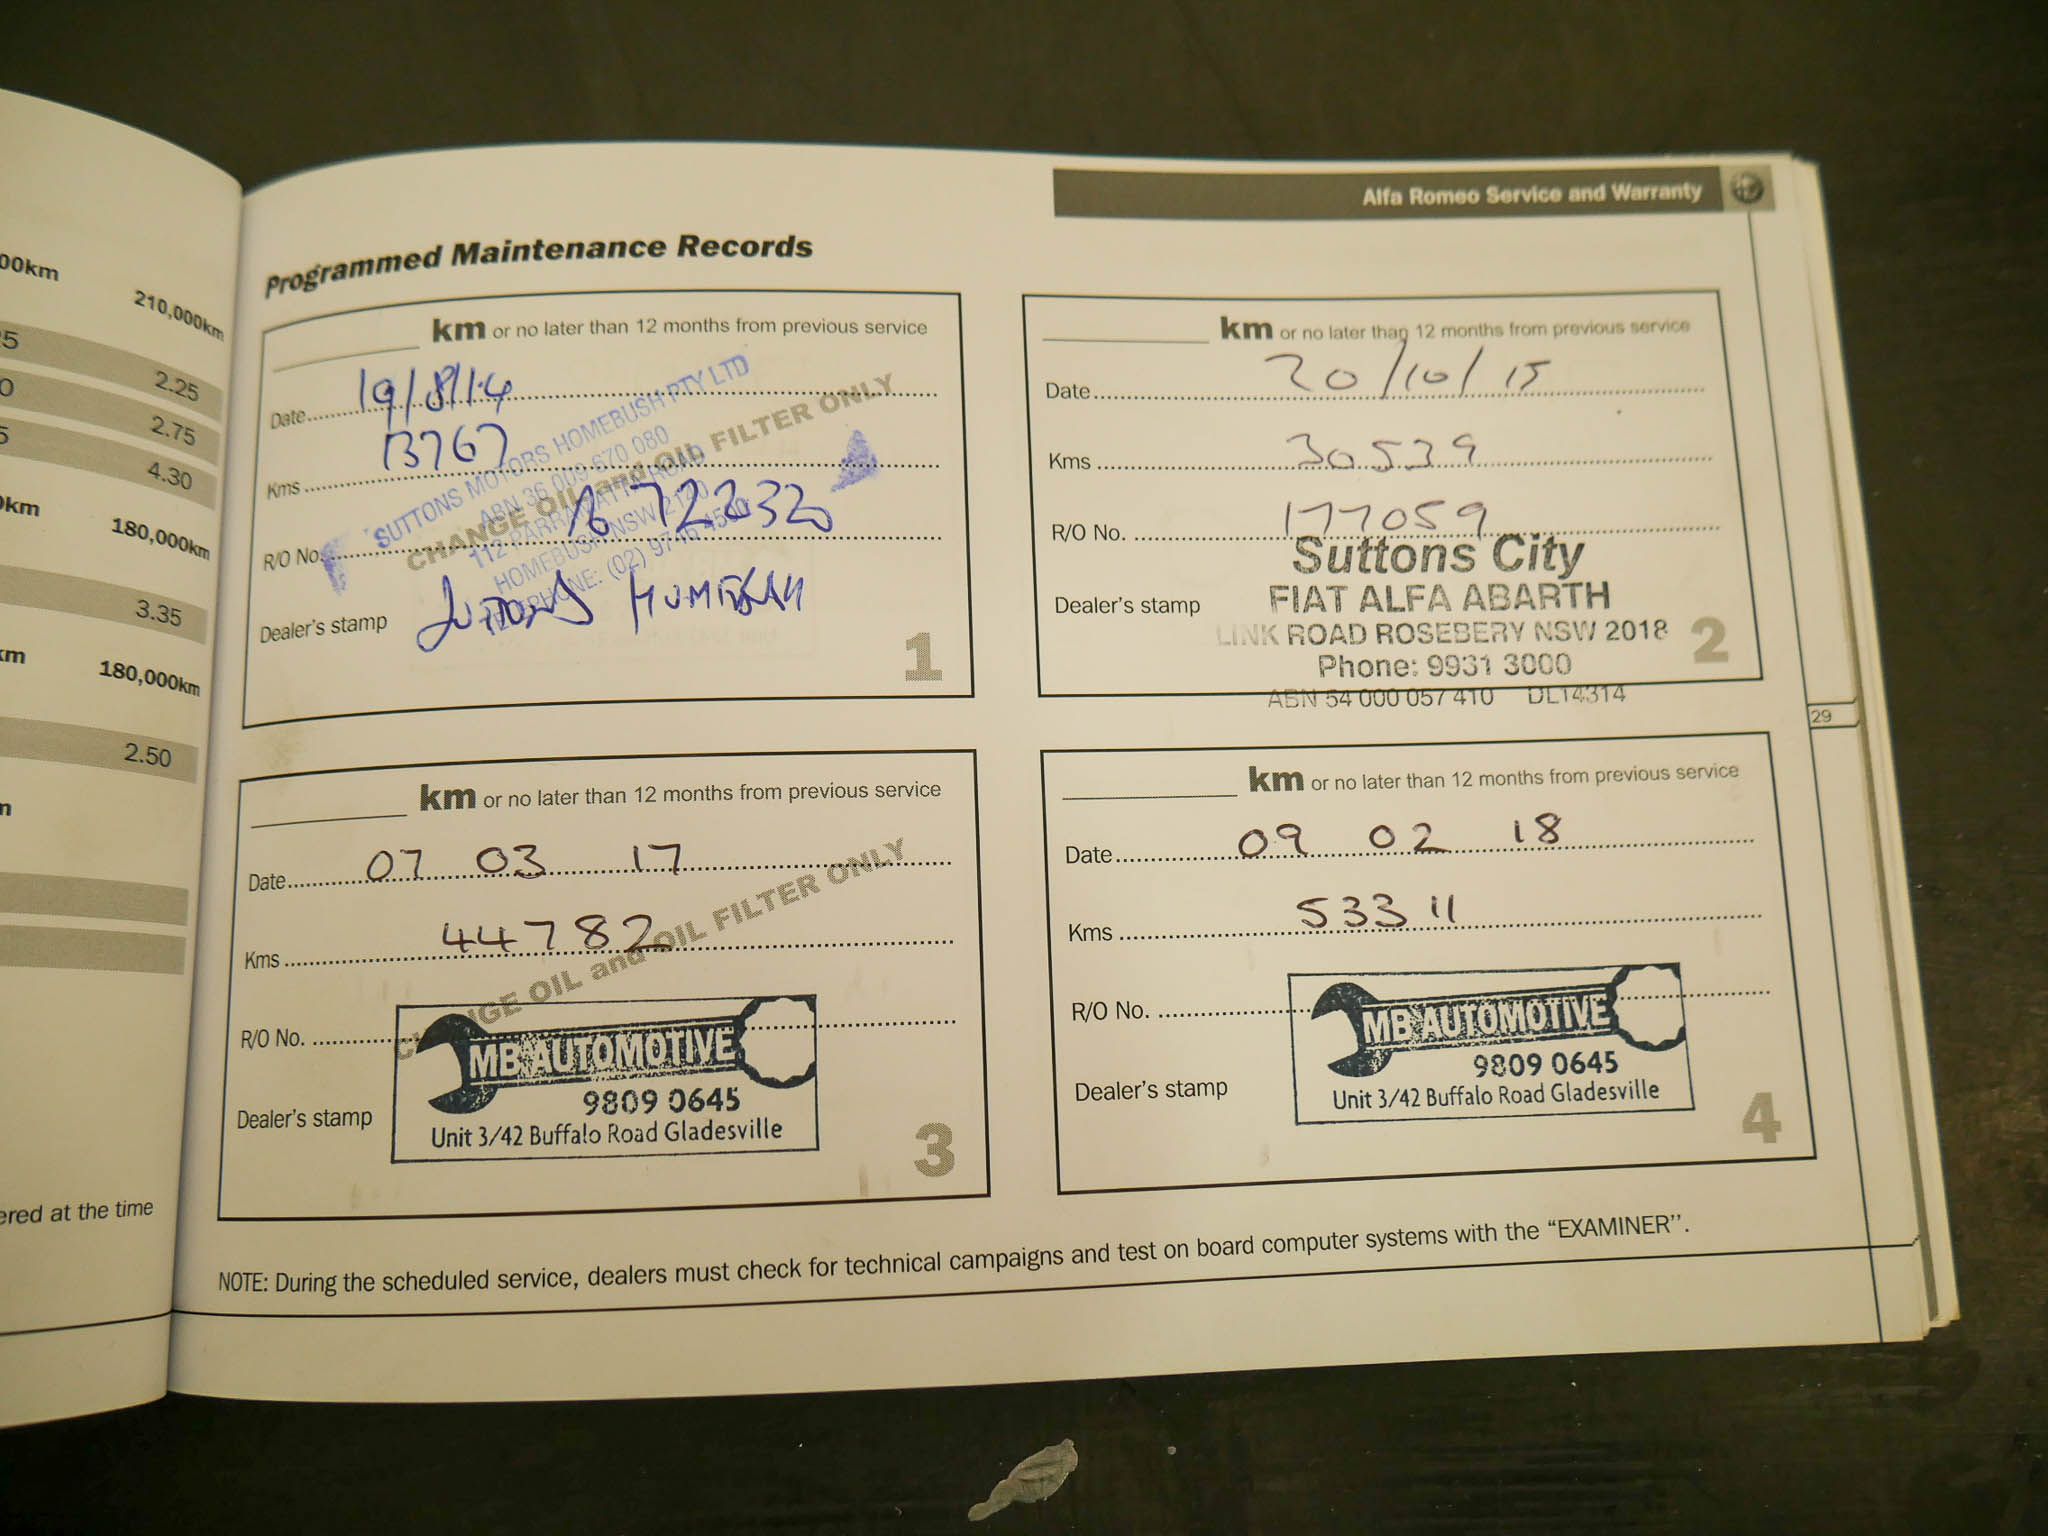 00km
210,000km
5
2.25
0
2.75
5
4.30
km
180,000km
3.35
km
180,000km
2.50
ered at the time
Alfa Romeo Service and Warranty
Programmed Maintenance Records
km or no later than 12 months from previous service
Date 19/8/14
Kms 13767
R/O No. 72232
Dealer's stamp
SUTTONS MOTORS HOMEBUSH PTY LTD
ABN 36 009 670 080
112 PARRAMATTA ROAD
HOMEBUSH NSW 2140
TELEPHONE: (02) 9746
CHANGE OIL and OIL FILTER ONLY
1
km or no later than 12 months from previous service
Date 20/10/15
Kms 30539
R/O No. 177059
Dealer's stamp
Suttons City
FIAT ALFA ABARTH
LINK ROAD ROSEBERY NSW 2018
Phone: 9931 3000
ABN 54 000 057 410 DL14314
2
29
km or no later than 12 months from previous service
Date 07 03 17
Kms 44782
CHANGE OIL and OIL FILTER ONLY
R/O No.
Dealer's stamp
MB AUTOMOTIVE
9809 0645
Unit 3/42 Buffalo Road Gladesville
3
km or no later than 12 months from previous service
Date 09 02 18
Kms 53311
R/O No.
Dealer's stamp
MB AUTOMOTIVE
9809 0645
Unit 3/42 Buffalo Road Gladesville
4
NOTE: During the scheduled service, dealers must check for technical campaigns and test on board computer systems with the “EXAMINER”.